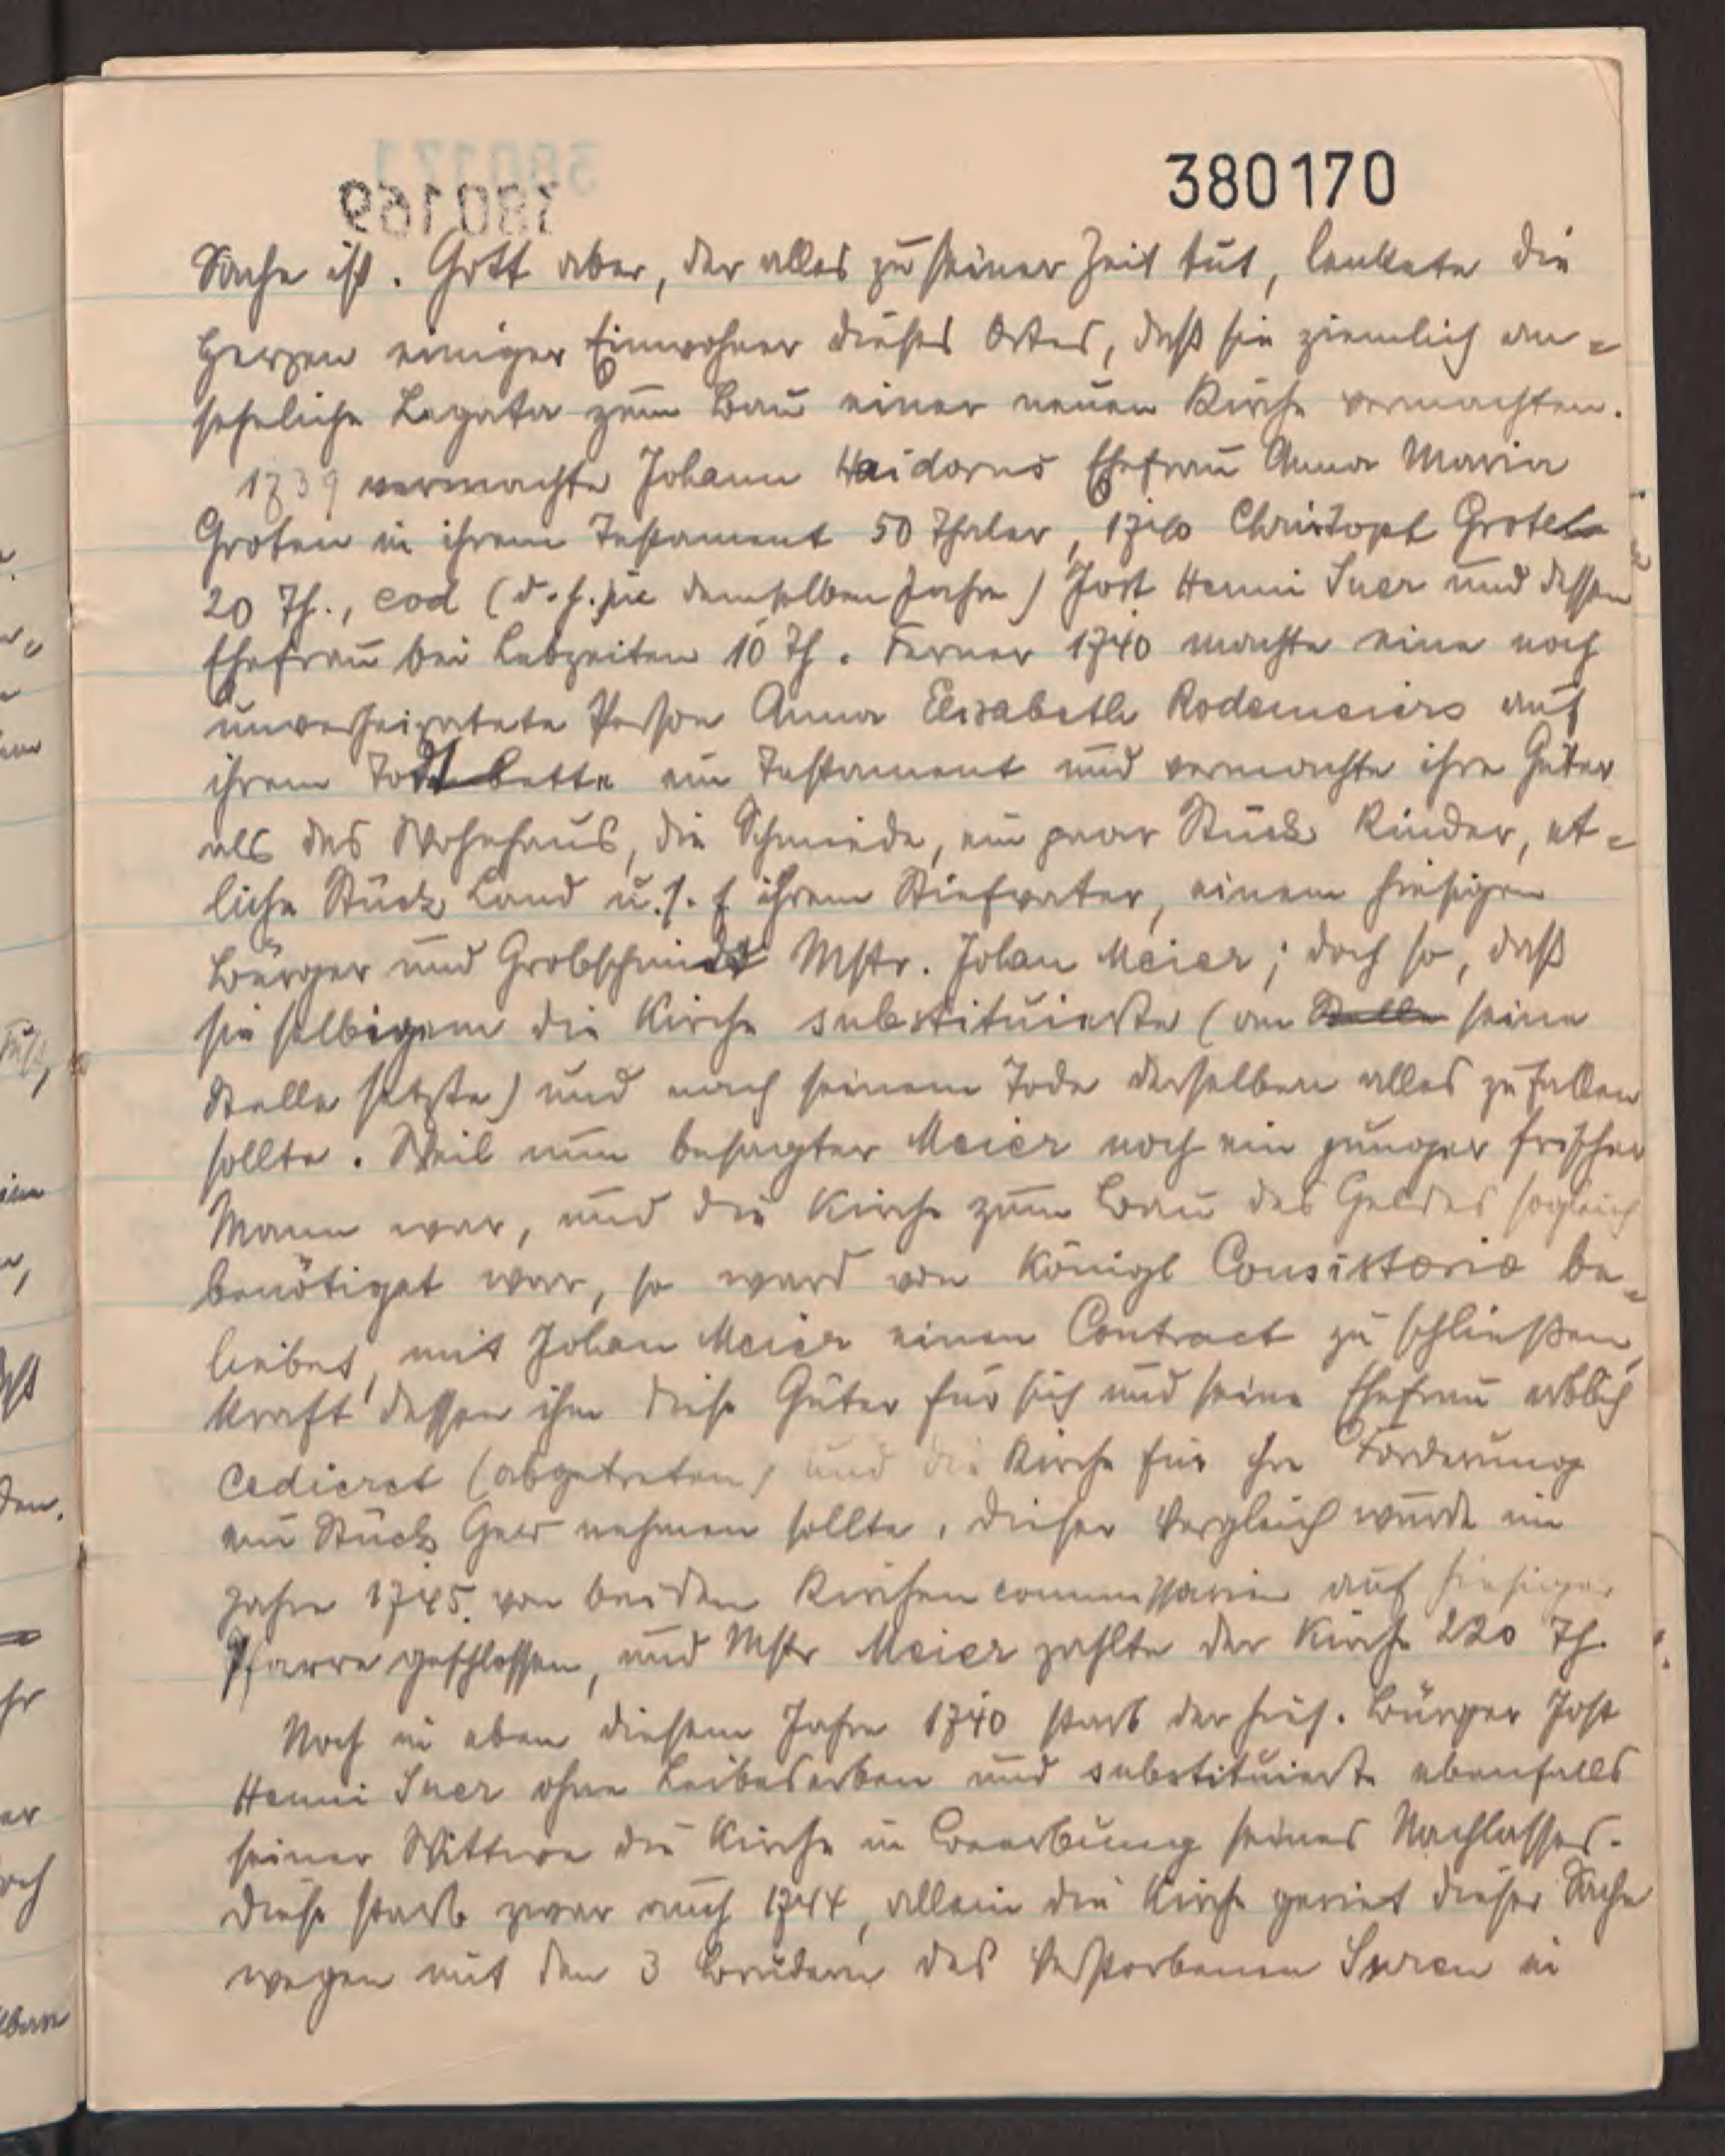 380170
Sache ist. Gott aber, der alles zu seiner Zeit tut, lenkete die
Herzen einiger Einwohner dieses Ortes, daß sie ziemlich an-
sehnliche Legata zum Bau einer neuen Kirche vermachten.
1739 vermachte Johann Haidorns Ehefrau Anna Maria
Groten in ihrem Testament 50 Thaler, 1740 Christoph Grote
20 Th., eod (d. h. in demselben Jahre) Jost Henni Suer und dessen
Ehefrau bei Lebzeiten 10 Th. Ferner 1740 machte eine noch
unverheiratete Person Anna Elisabeth Rodemeiers auf
ihrem Todtbette ein Testament und vermachte ihre Güter
als das Wohnhaus, die Schmiede, ein paar Stück Rinder, et-
liche Stück Land u. s. f ihrem Stiefvater, einem hiesigen
Bürger und Grobschmidt Mstr. Johan Meier; doch so, daß
sie selbigem die Kirche substituierte (an Stelle seine
Stelle setzte) und nach seinem Tode derselben alles zufallen
sollte. Weil nun besagter Meier noch ein junger frischer
Mann war, und die Kirche zum Bau des Geldes sogleich
benötiget war, so ward von Königl Consistorio be-
liebet, mit Johan Meier einen Contract zu schließen,
kraft dessen ihm diese Güter für sich und seine Ehefrau erblich
cedieret (abgetreten) und die Kirche für ihre Forderung
ein Stück Geld nehmen sollte. Dieser Vergleich wurde im
Jahre 1745. von beiden Kirchencommissarien auf hiesiger
Pfarre geschlossen, und Mstr Meier zahlte der Kirche 220 Th.
Noch in eben diesem Jahre 1740 starb der hies. Bürger Jost
Henni Suer ohne Leibeserben und substituierte ebenfalls
seiner Wittwe die Kirche in Beerbung seines Nachlasses.
Diese starb zwar auch 1744, allein die Kirche geriet dieser Sache
wegen mit den 3 Brüdern des Verstorbenen Suren in